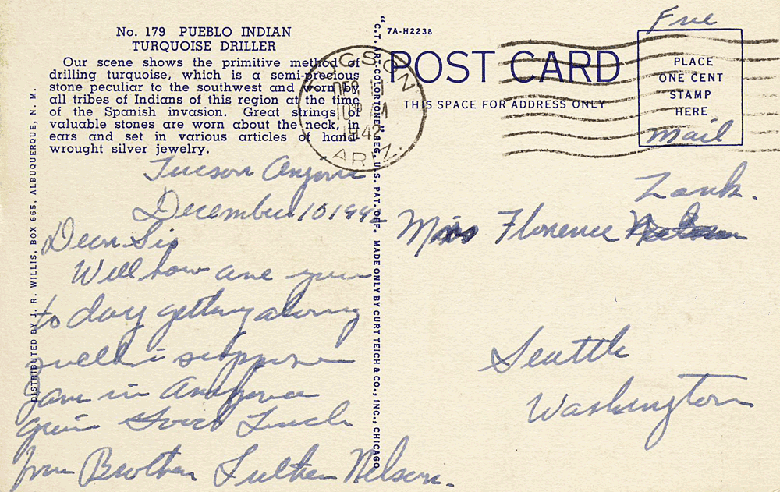 No. 179 PUEBLO INDIAN
TURQUOISE DRILLER
Our scene shows the primitive method of
drilling turquoise, which is a semi-precious
stone peculiar to the southwest and worn by
all tribes of Indians of this region at the time
of the Spanish invasion. Great strings of
valuable stones are worn about the neck, in
ears and set in various articles of hand
wrought silver jewelry.
7A-H2238
POST CARD
THIS SPACE FOR ADDRESS ONLY
Free
PLACE
ONE CENT
STAMP
HERE
Mail
TUCSON
DEC
1942
ARIZ.
DISTRIBUTED BY J. R. WILLIS, BOX 665, ALBUQUERQUE, N. M.
"C.T. ART-COLORTONE" REG. U.S. PAT. OFF. MADE ONLY BY CURT TEICH & CO., INC., CHICAGO
Tucson
December 10 194
Dear Sis
Well how are you
to day getting along
well i suppose
in
Luck
from Brother Luther Nelson.
Zank.
Florence
Seattle
Washington